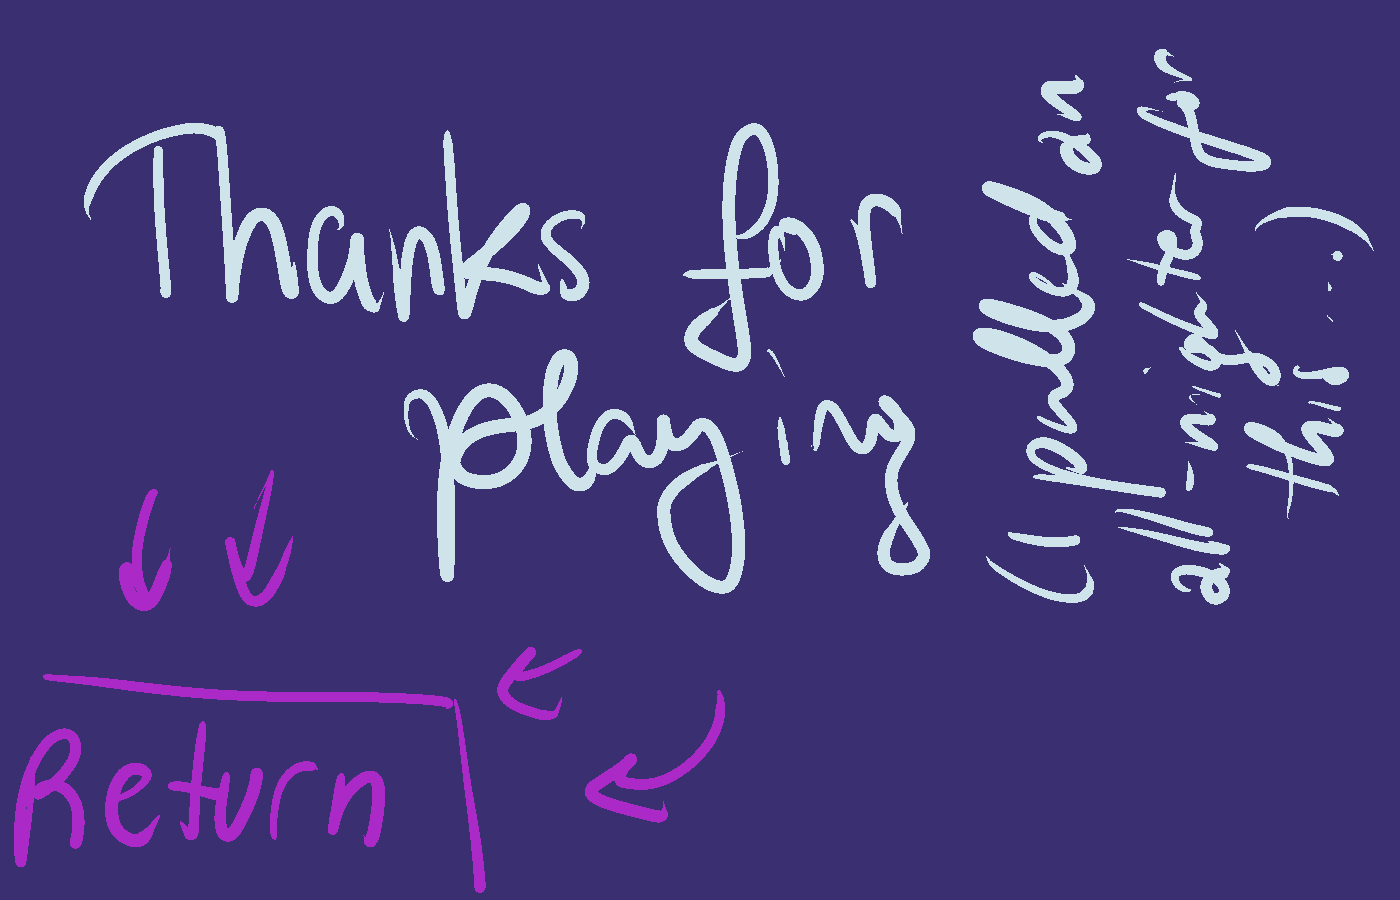 Thanks for
playing
(I pulled an
all-nighter for
this...)
Return